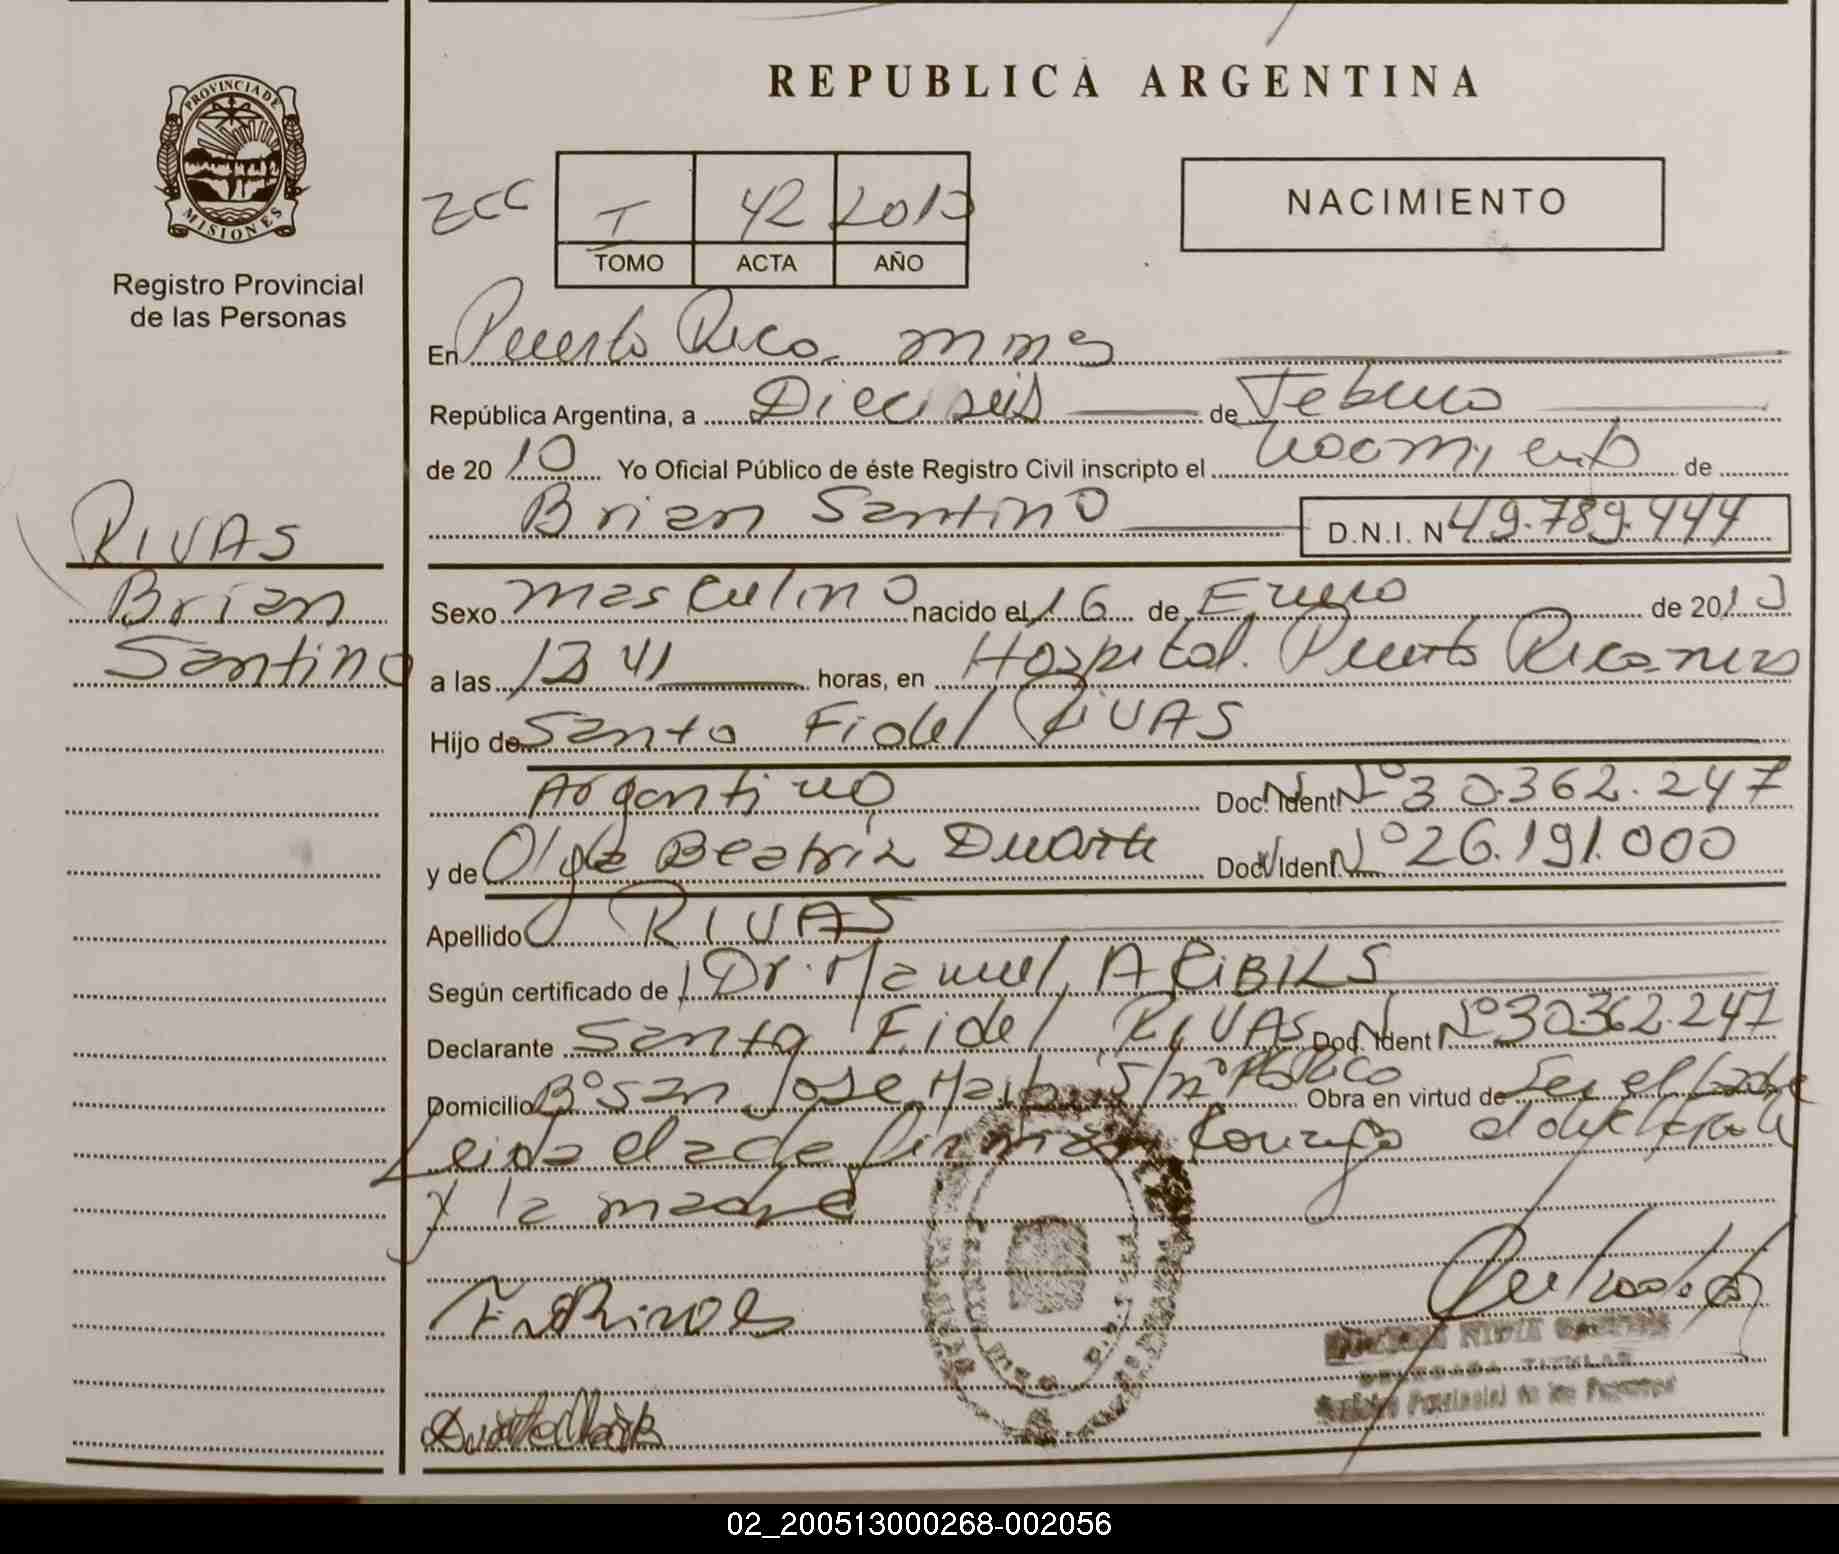 PROVINCIA DE
MISIONES
Registro Provincial
de las Personas
RIVAS
Brian
Santino
REPUBLICA ARGENTINA
NACIMIENTO
T 42 2010
TOMO ACTA AÑO
En Puerto Rico mnes
República Argentina, a Dieciseis de Febrero
de 20 10 Yo Oficial Público de éste Registro Civil inscripto el nacimiento de
Brian Santino D.N.I. N 49.789.444
Sexo masculino nacido el 16 de Enero de 20 10
a las 13 41 horas, en Hospital. Puerto Rico mnes
Hijo de Santo Fidel RIVAS
Argentino Doc. Ident. Nº 30.362.247
y de Olga Beatriz Duarte Doc. Ident. Nº 26.191.000
Apellido RIVAS
Según certificado de Dr. Manuel ARIBILS
Declarante Santo Fidel RIVAS Doc. Ident Nº 30.362.247
Domicilio Bº San Jose s/nº Pto Rico Obra en virtud de ser el padre
Leida el acta firman conmigo el declarante
y la madre
F. Rivas
TITULAR
Registro Provincial de las Personas
02_200513000268-002056